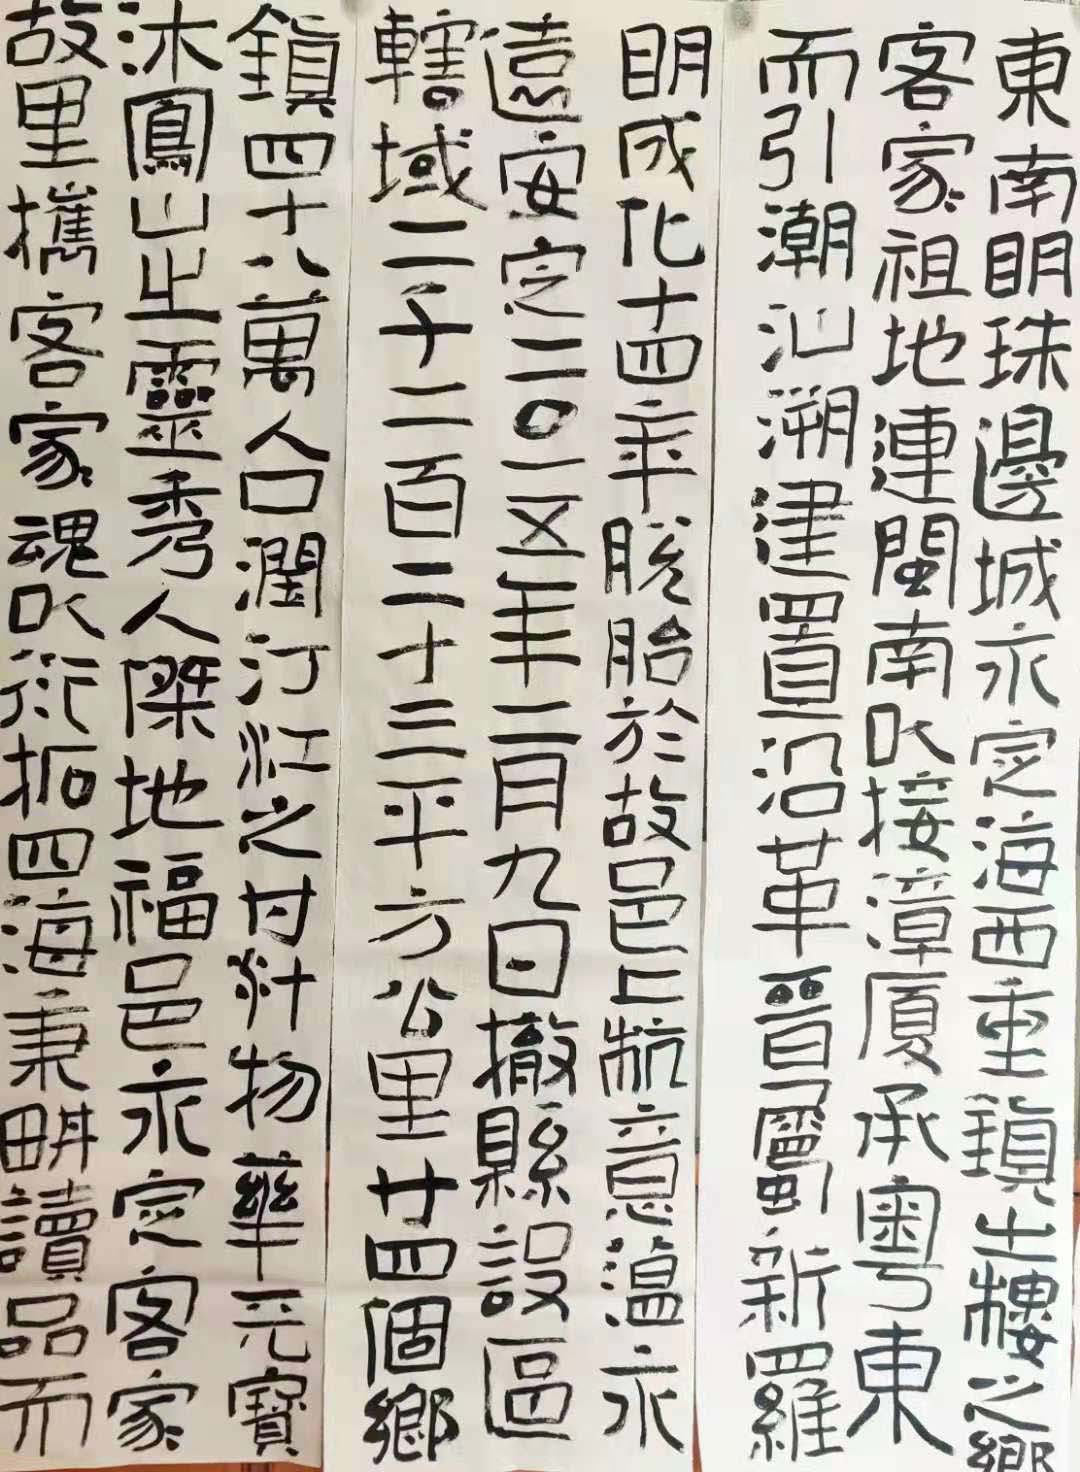 東南明珠邊城永定海西重鎮土樓之鄉
客家祖地連閩南以接漳厦承粵東
而引潮汕溯建置沿革晉屬新羅
明成化十四年脫胎於故邑上杭意蕴永
遠安定二〇一五年二月九日撤縣設區
轄域二千二百二十三平方公里廿四個鄉
鎮四十八萬人口潤汀江之甘 物華天寶
沐鳳山之靈秀人傑地福邑永定客家
故里攜客家魂以衍拓四海秉耕讀品而